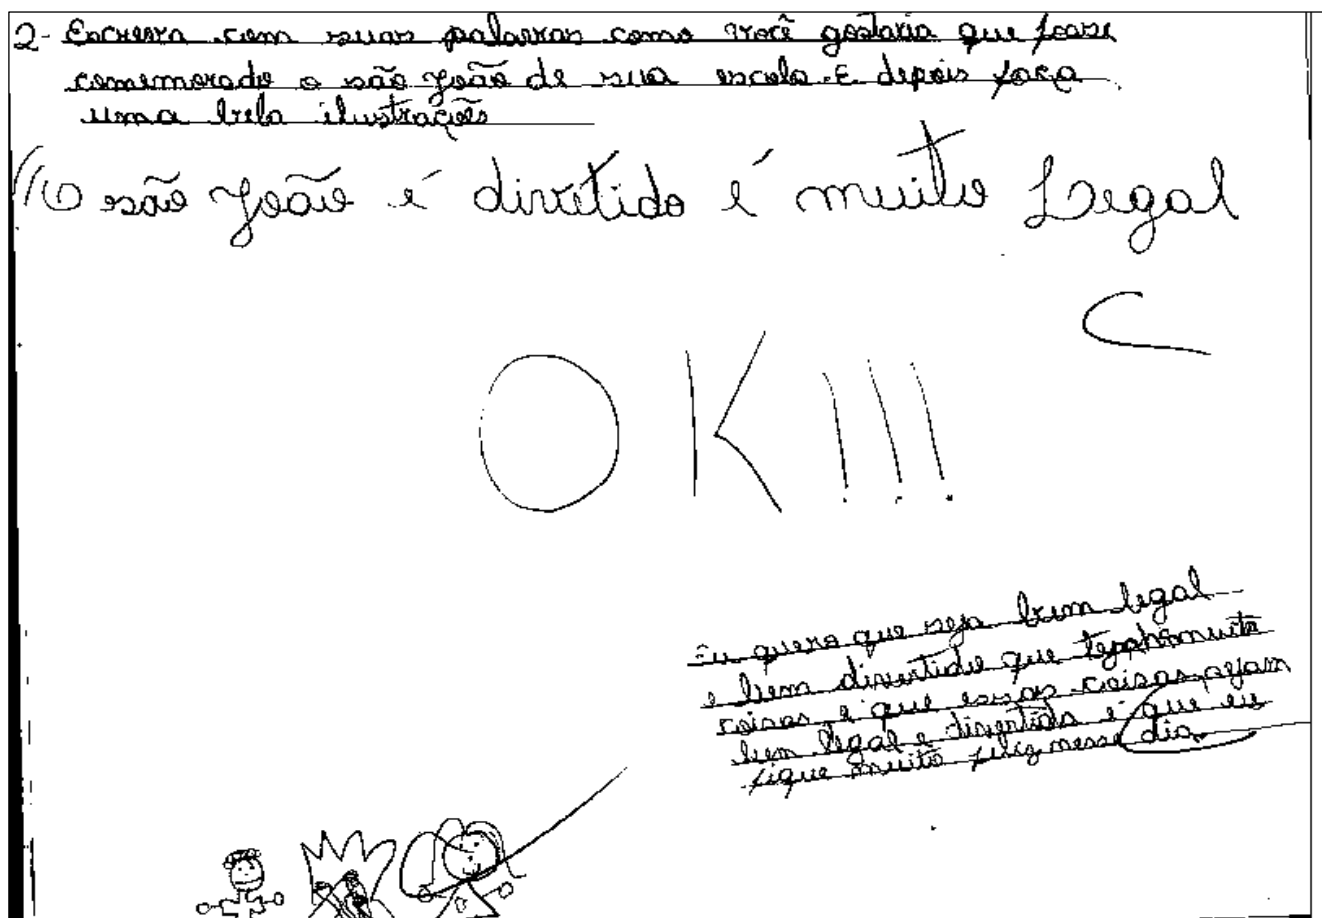 2- Escreva com suas palavras como você gostaria que fosse
comemorado o são João de sua escola. E depois faça
uma bela ilustrações
O são João é divetido é muito Legal
C
OK!!!
Eu quero que seja bem legal
e bem divertido que tenha muita
coisas e que essas coisas sejam
bem legal e divertida e que eu
fique muito feliz nesse dia